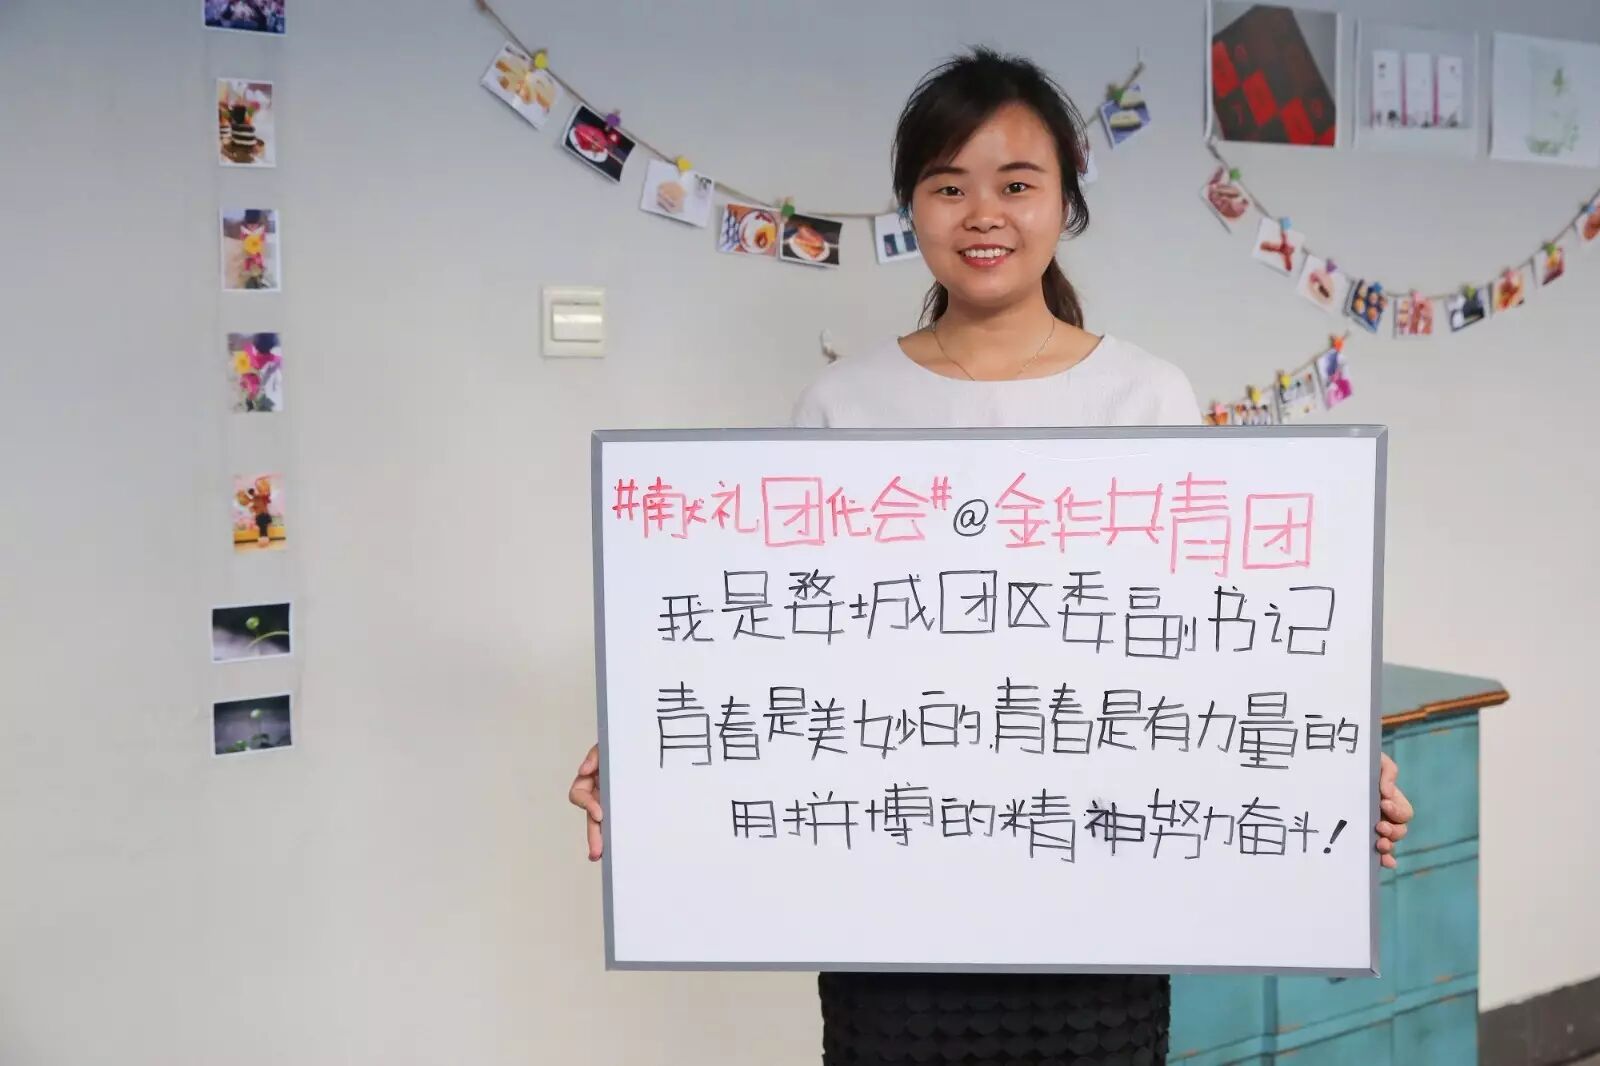 #献礼团代会#@金华共青团
我是婺城团区委副书记
青春是美妙的,青春是有力量的
用拼博的精神努力奋斗!